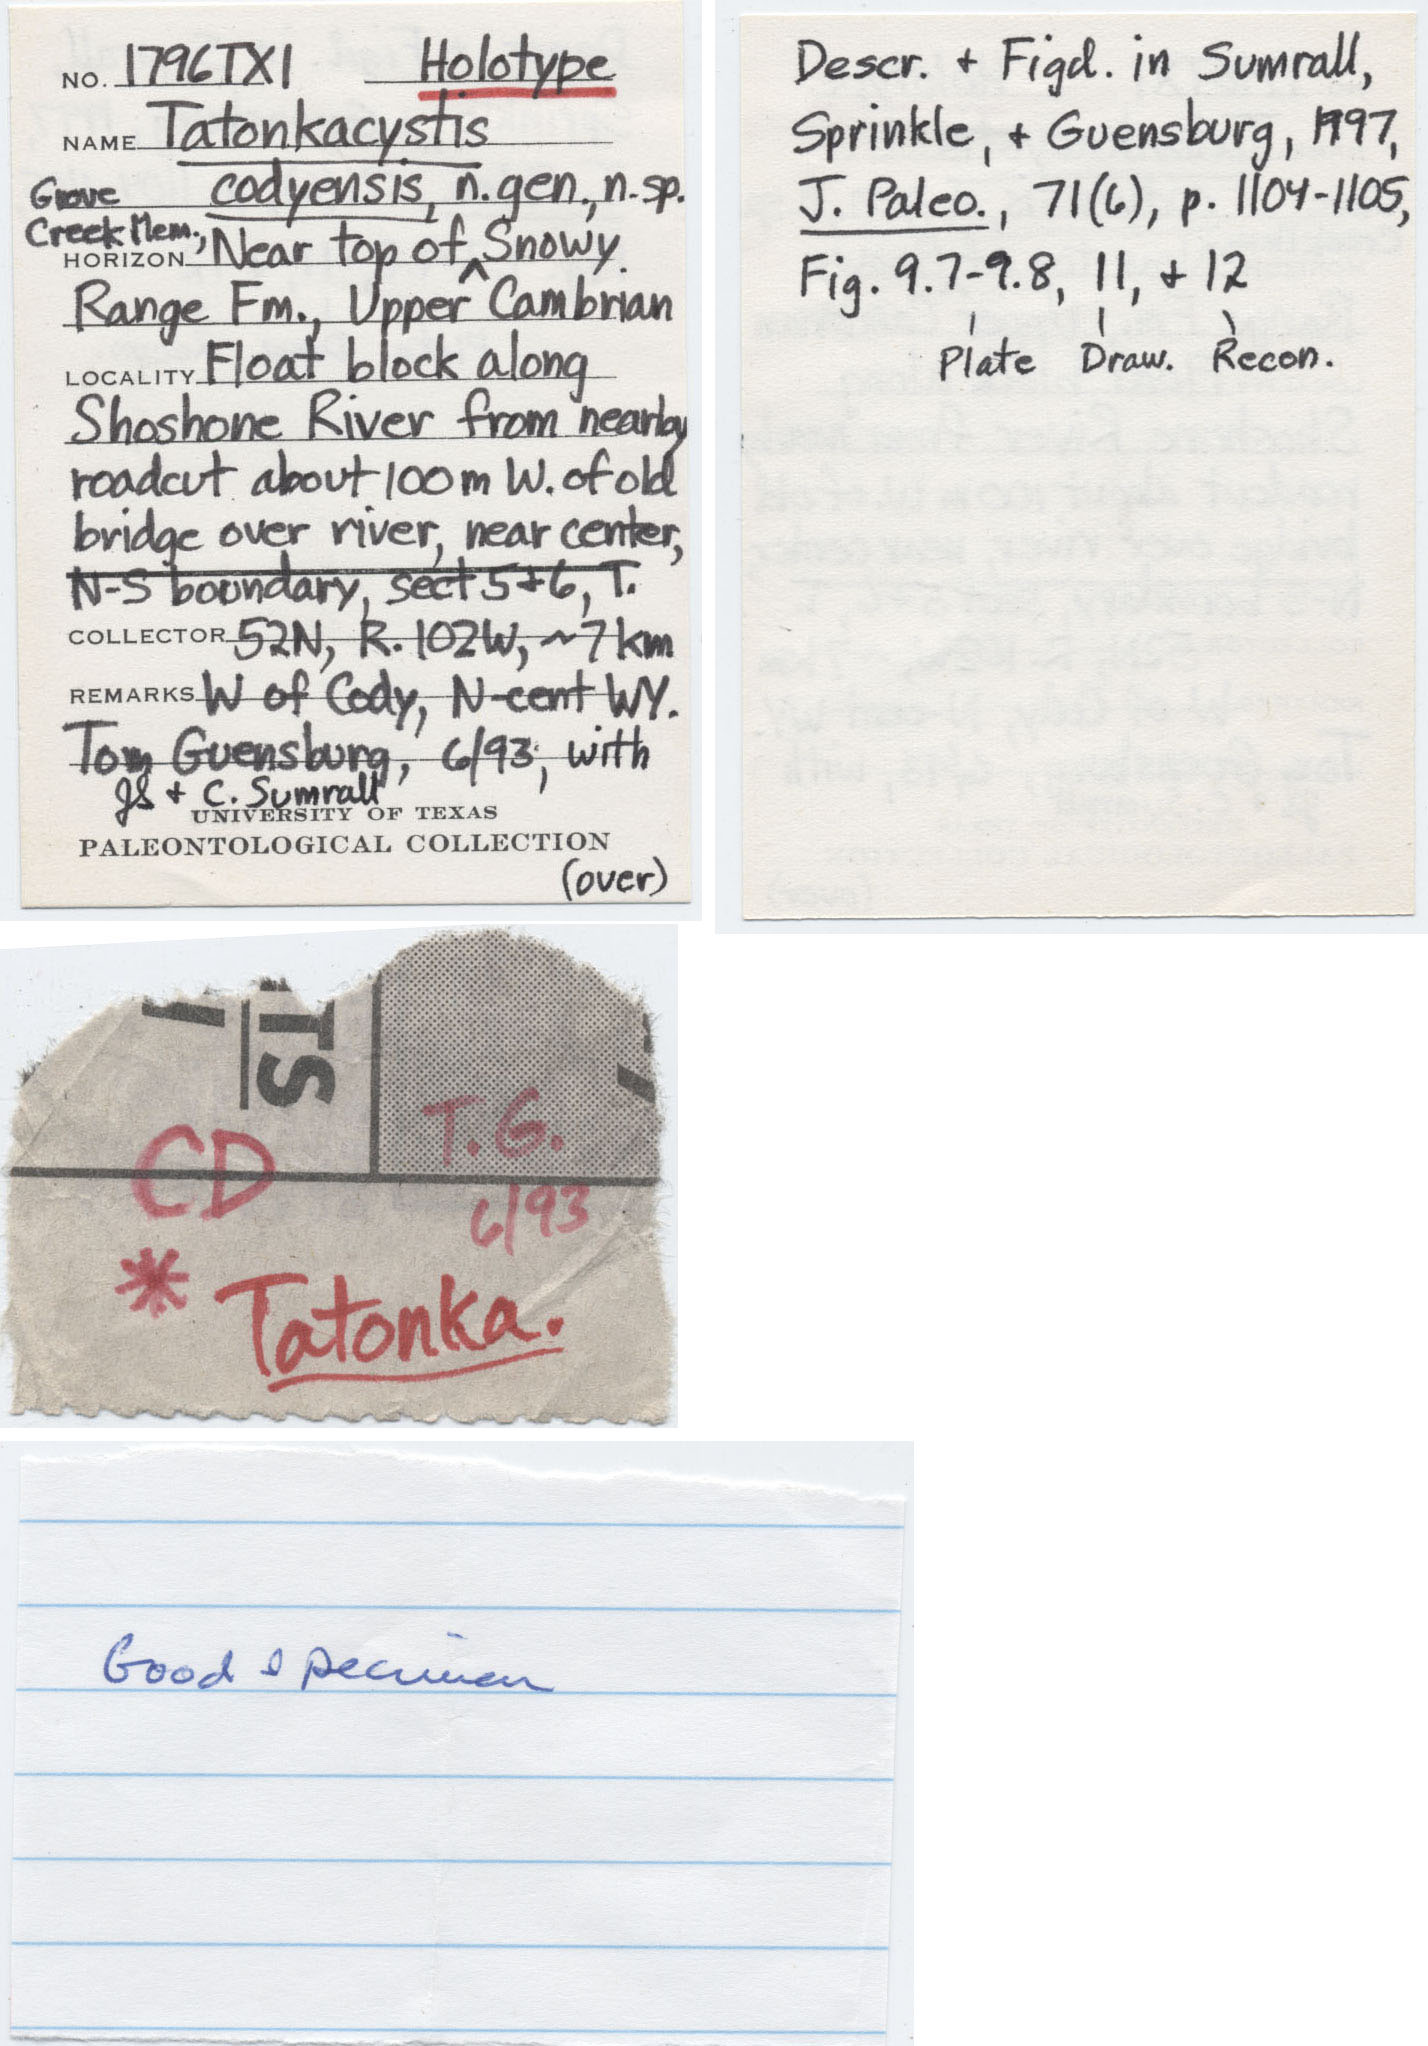 NO. 1796TX1 Holotype
NAME Tatonkacystis
codyensis, n.gen., n.sp.
Grove
Creek Mem.,
HORIZON Near top of ^ Snowy
Range Fm., Upper Cambrian
LOCALITY Float block along
Shoshone River from nearby
roadcut about 100m W. of old
bridge over river, near center,
N-S boundary, sect 5+6, T.
COLLECTOR 52N, R. 102W, ~7km
REMARKS W of Cody, N-cent WY.
Tom Guensburg, 6/93, with
JS + C. Sumrall
UNIVERSITY OF TEXAS
PALEONTOLOGICAL COLLECTION
(over)
Descr. + Figd. in Sumrall,
Sprinkle, + Guensburg, 1997,
J. Paleo., 71(6), p. 1104-1105,
Fig. 9.7-9.8, 11, + 12
Plate Draw. Recon.
TS
T.G.
CD
6/93
* Tatonka.
Good specimen